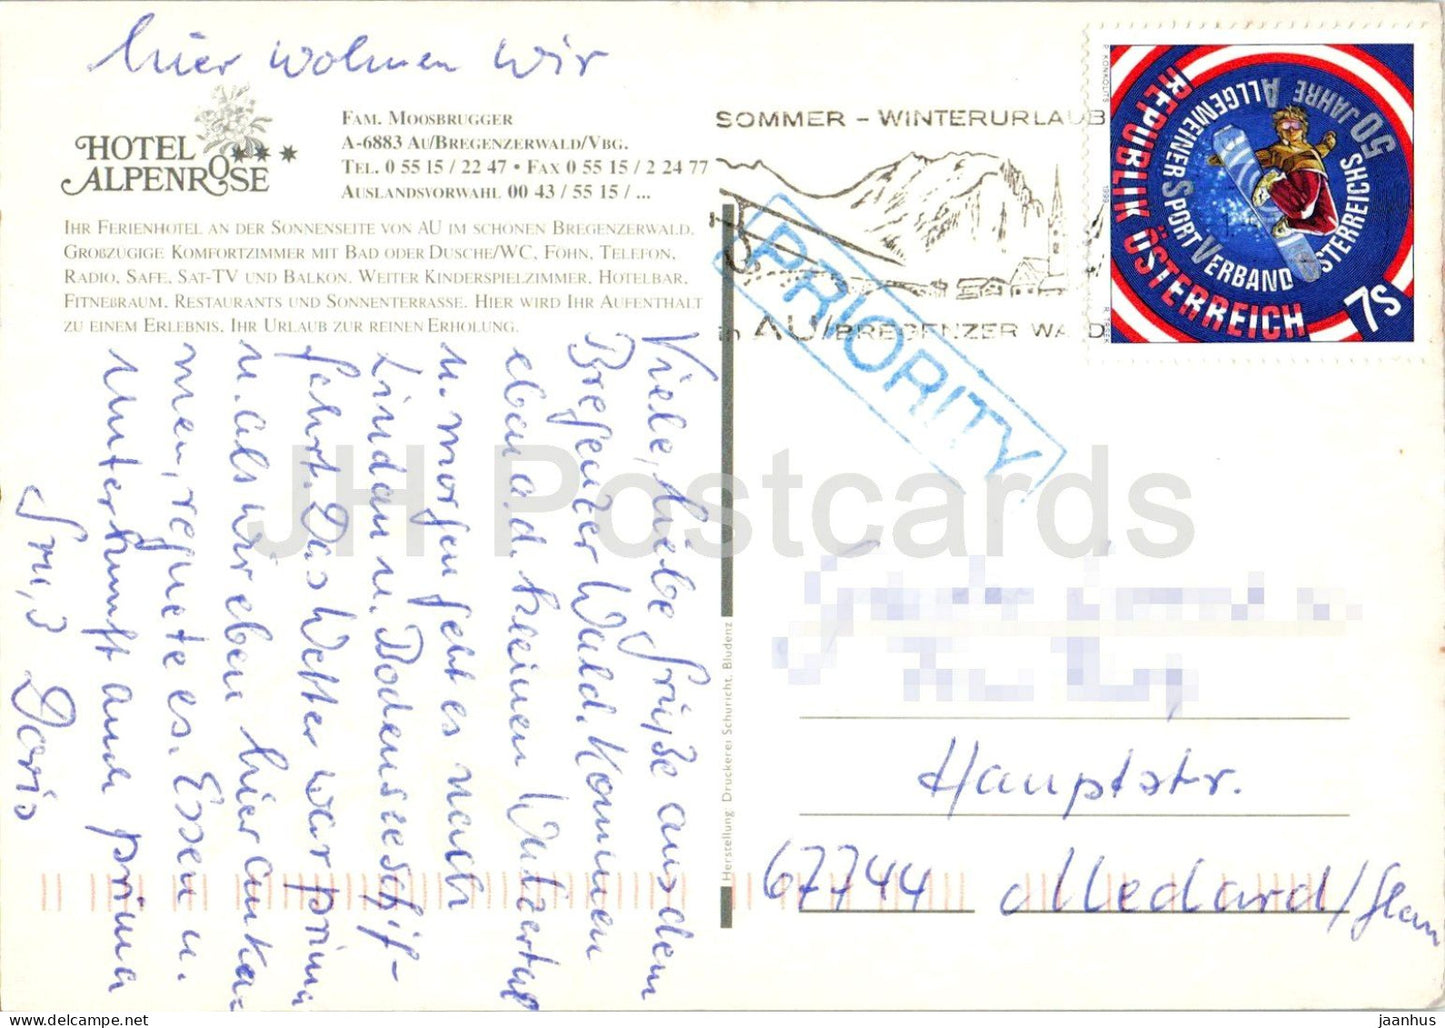 hier wohnen wir
HOTEL ***
ALPENROSE
FAM. MOOSBRUGGER
A-6883 AU/BREGENZERWALD/VBG.
TEL. 0 55 15 / 22 47 • FAX 0 55 15 / 2 24 77
AUSLANDSVORWAHL 00 43 / 55 15 / ...
IHR FERIENHOTEL AN DER SONNENSEITE VON AU IM SCHÖNEN BREGENZERWALD.
GROßZÜGIGE KOMFORTZIMMER MIT BAD ODER DUSCHE/WC, FÖHN, TELEFON,
RADIO, SAFE, SAT-TV UND BALKON. WEITER KINDERSPIELZIMMER, HOTELBAR,
FITNEßRAUM, RESTAURANTS UND SONNENTERRASSE. HIER WIRD IHR AUFENTHALT
ZU EINEM ERLEBNIS, IHR URLAUB ZUR REINEN ERHOLUNG.
Viele, liebe Grüße aus dem
Bregenzer Wald. Kommen
eben a. d. kleinen Walsertal
u. morgen geht es nach
Lindau u. Bodenseeschif-
fahrt. Das Wetter war prima
u. als wir eben hier anka-
men, regnete es. Essen u.
Unterkunft auch prima
Gruß Doris
Herstellung: Druckerei Schuricht, Bludenz
SOMMER - WINTERURLAUB
in AU/BREGENZER WALD
PRIORITY
REPUBLIK ÖSTERREICH
50 JAHRE ALLGEMEINER SPORTVERBAND ÖSTERREICHS
7S
1999
Hauptstr.
67744 Medard/Glan
JH Postcards
www.jhpostcards.com
jaanhus